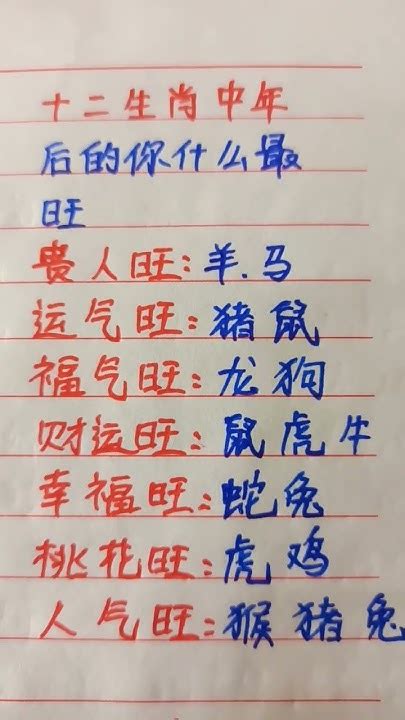 十二生肖中年
后的你什么最
旺
贵人旺:羊.马
运气旺:猪鼠
福气旺:龙狗
财运旺:鼠虎牛
幸福旺:蛇兔
桃花旺:虎鸡
人气旺:猴猪兔